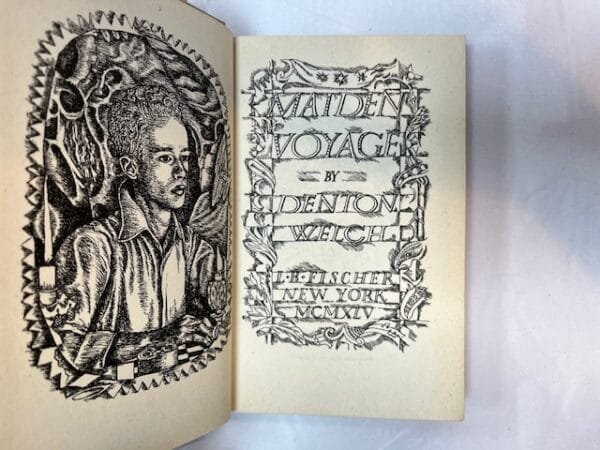 MAIDEN
VOYAGE
BY
DENTON
WELCH.
L·B·FISCHER
NEW YORK
MCMXLV